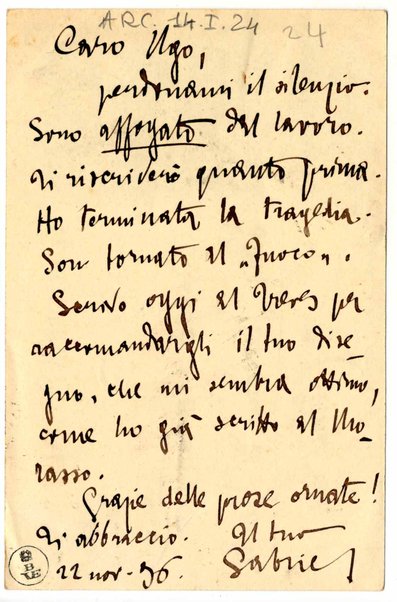 ARC. 14. I. 24
24
Caro Ugo,
perdonami il silenzio.
Sono affogato dal lavoro.
Ti riscriverò quanto prima.
Ho terminata la tragedia.
Son tornato al „Fuoco".
Scrivo oggi al Treves per
raccomandargli il tuo dise-
gno, che mi sembra ottimo,
come ho già scritto al Mo-
rasso.
Grazie delle prose ornate!
Ti abbraccio. Il tuo
22 nov. 96. Gabriel